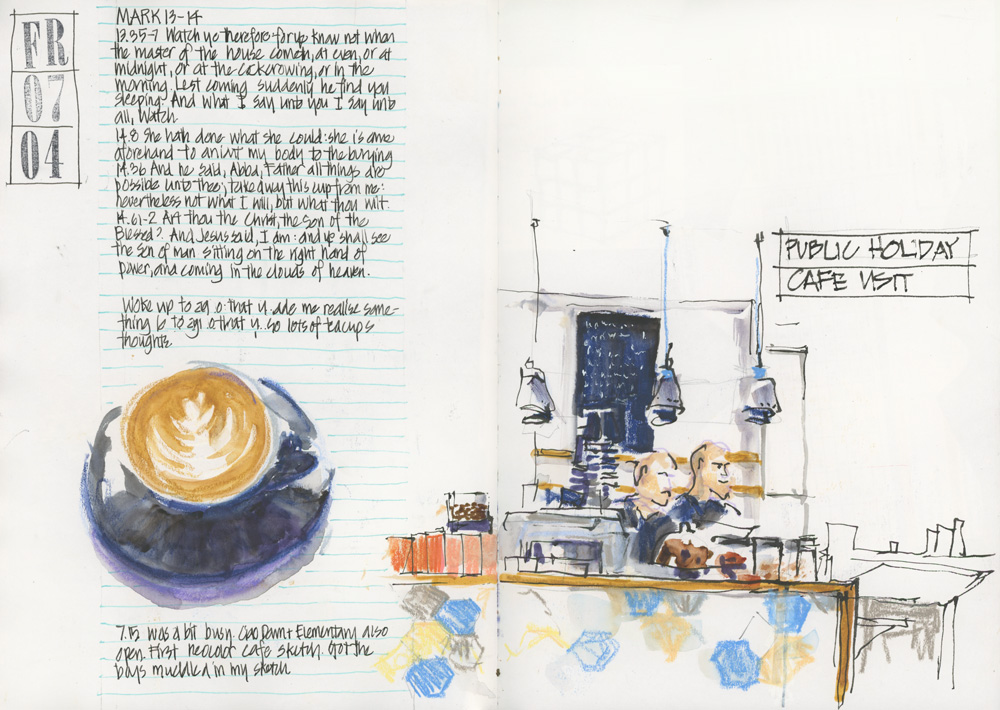 FR
07
04
MARK 13-14
13.35-7 Watch ye therefore for ye know not when
the master of the house cometh, at even, or at
midnight, or at the cockcrowing, or in the
morning. Lest coming suddenly he find you
sleeping. And what I say unto you I say unto
all, Watch.
14.8 She hath done what she could: she is come
aforehand to anoint my body to the burying
14.36 And he said, Abba, Father all things are
possible unto thee; take away this cup from me:
nevertheless not what I will, but what thou wilt.
14.61-2 Art thou the Christ, the Son of the
Blessed? And Jesus said, I am: and ye shall see
the son of man sitting on the right hand of
power, and coming in the clouds of heaven.
Woke up to that made me realise some-
thing is to that so lots of teacups
thoughts.
7.15 was a bit busy. Elementary also
open. First neocolor cafe sketch. Got the
boys muddled in my sketch
PUBLIC HOLIDAY
CAFE VISIT